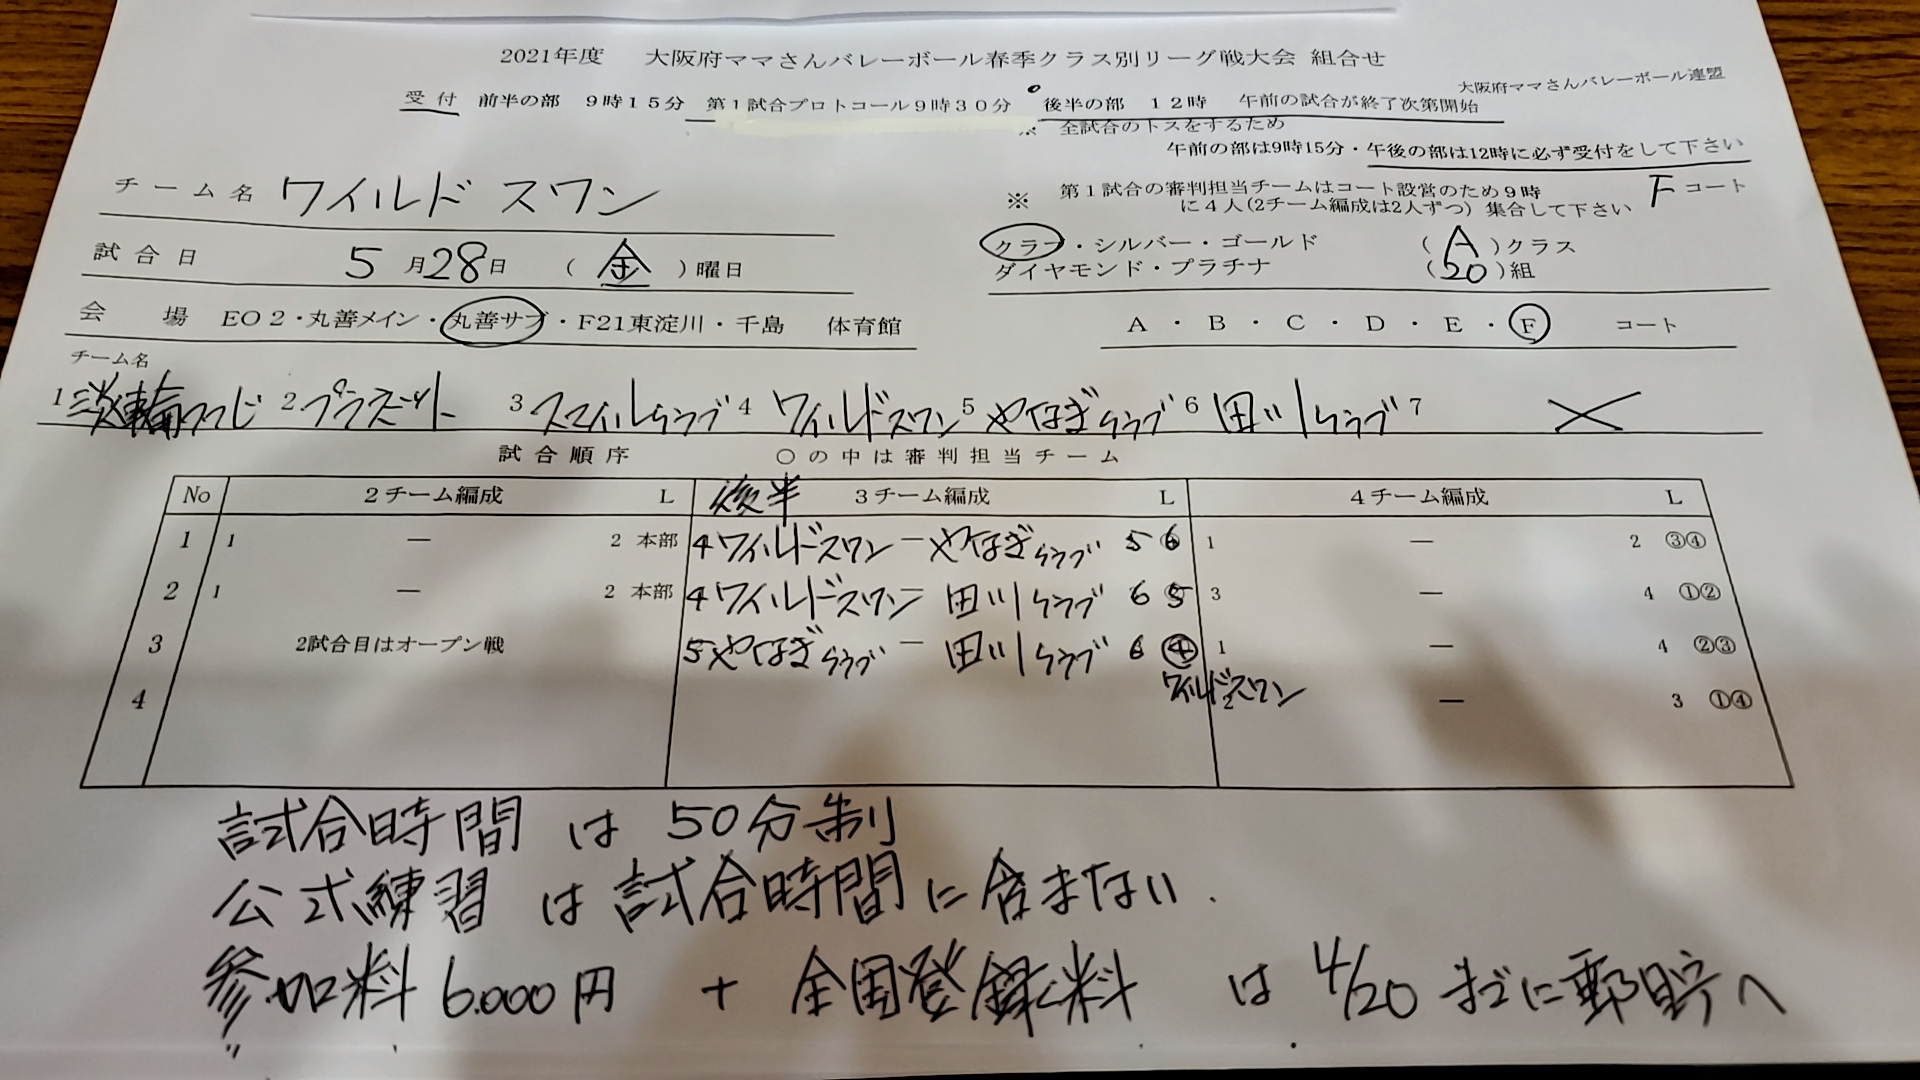 2021年度 大阪府ママさんバレーボール春季クラス別リーグ戦大会 組合せ
大阪府ママさんバレーボール連盟
受付 前半の部 9時15分 第1試合プロトコール9時30分 後半の部 12時 午前の試合が終了次第開始
※ 全試合のトスをするため
午前の部は9時15分・午後の部は12時に必ず受付をして下さい
チーム名 ワイルドスワン
※ 第1試合の審判担当チームはコート設営のため9時 Fコート
に4人(2チーム編成は2人ずつ) 集合して下さい
試合日 5月28日 (金)曜日
クラブ・シルバー・ゴールド (A)クラス
ダイヤモンド・プラチナ (20)組
会場 EO2・丸善メイン・丸善サブ・F21東淀川・千島 体育館
A・B・C・D・E・F コート
チーム名
1 淡輪つつじ 2 3 スマイルクラブ 4 ワイルドスワン 5 やなぎクラブ 6 田川クラブ 7 ×
試合順序 ○の中は審判担当チーム
No 2チーム編成 L 後半 3チーム編成 L 4チーム編成 L
1 1 — 2 本部 4ワイルドスワン — やなぎクラブ 5 ⑥ 1 — 2 ③④
2 1 — 2 本部 4ワイルドスワン — 田川クラブ 6 ⑤ 3 — 4 ①②
3 2試合目はオープン戦 5やなぎクラブ — 田川クラブ 6 ④ 1 — 4 ②③
ワイルドスワン
4 2 — 3 ①④
試合時間は50分制
公式練習は試合時間に含まない.
参加料6.000円 + 全国登録料 は 4/20までに郵貯へ